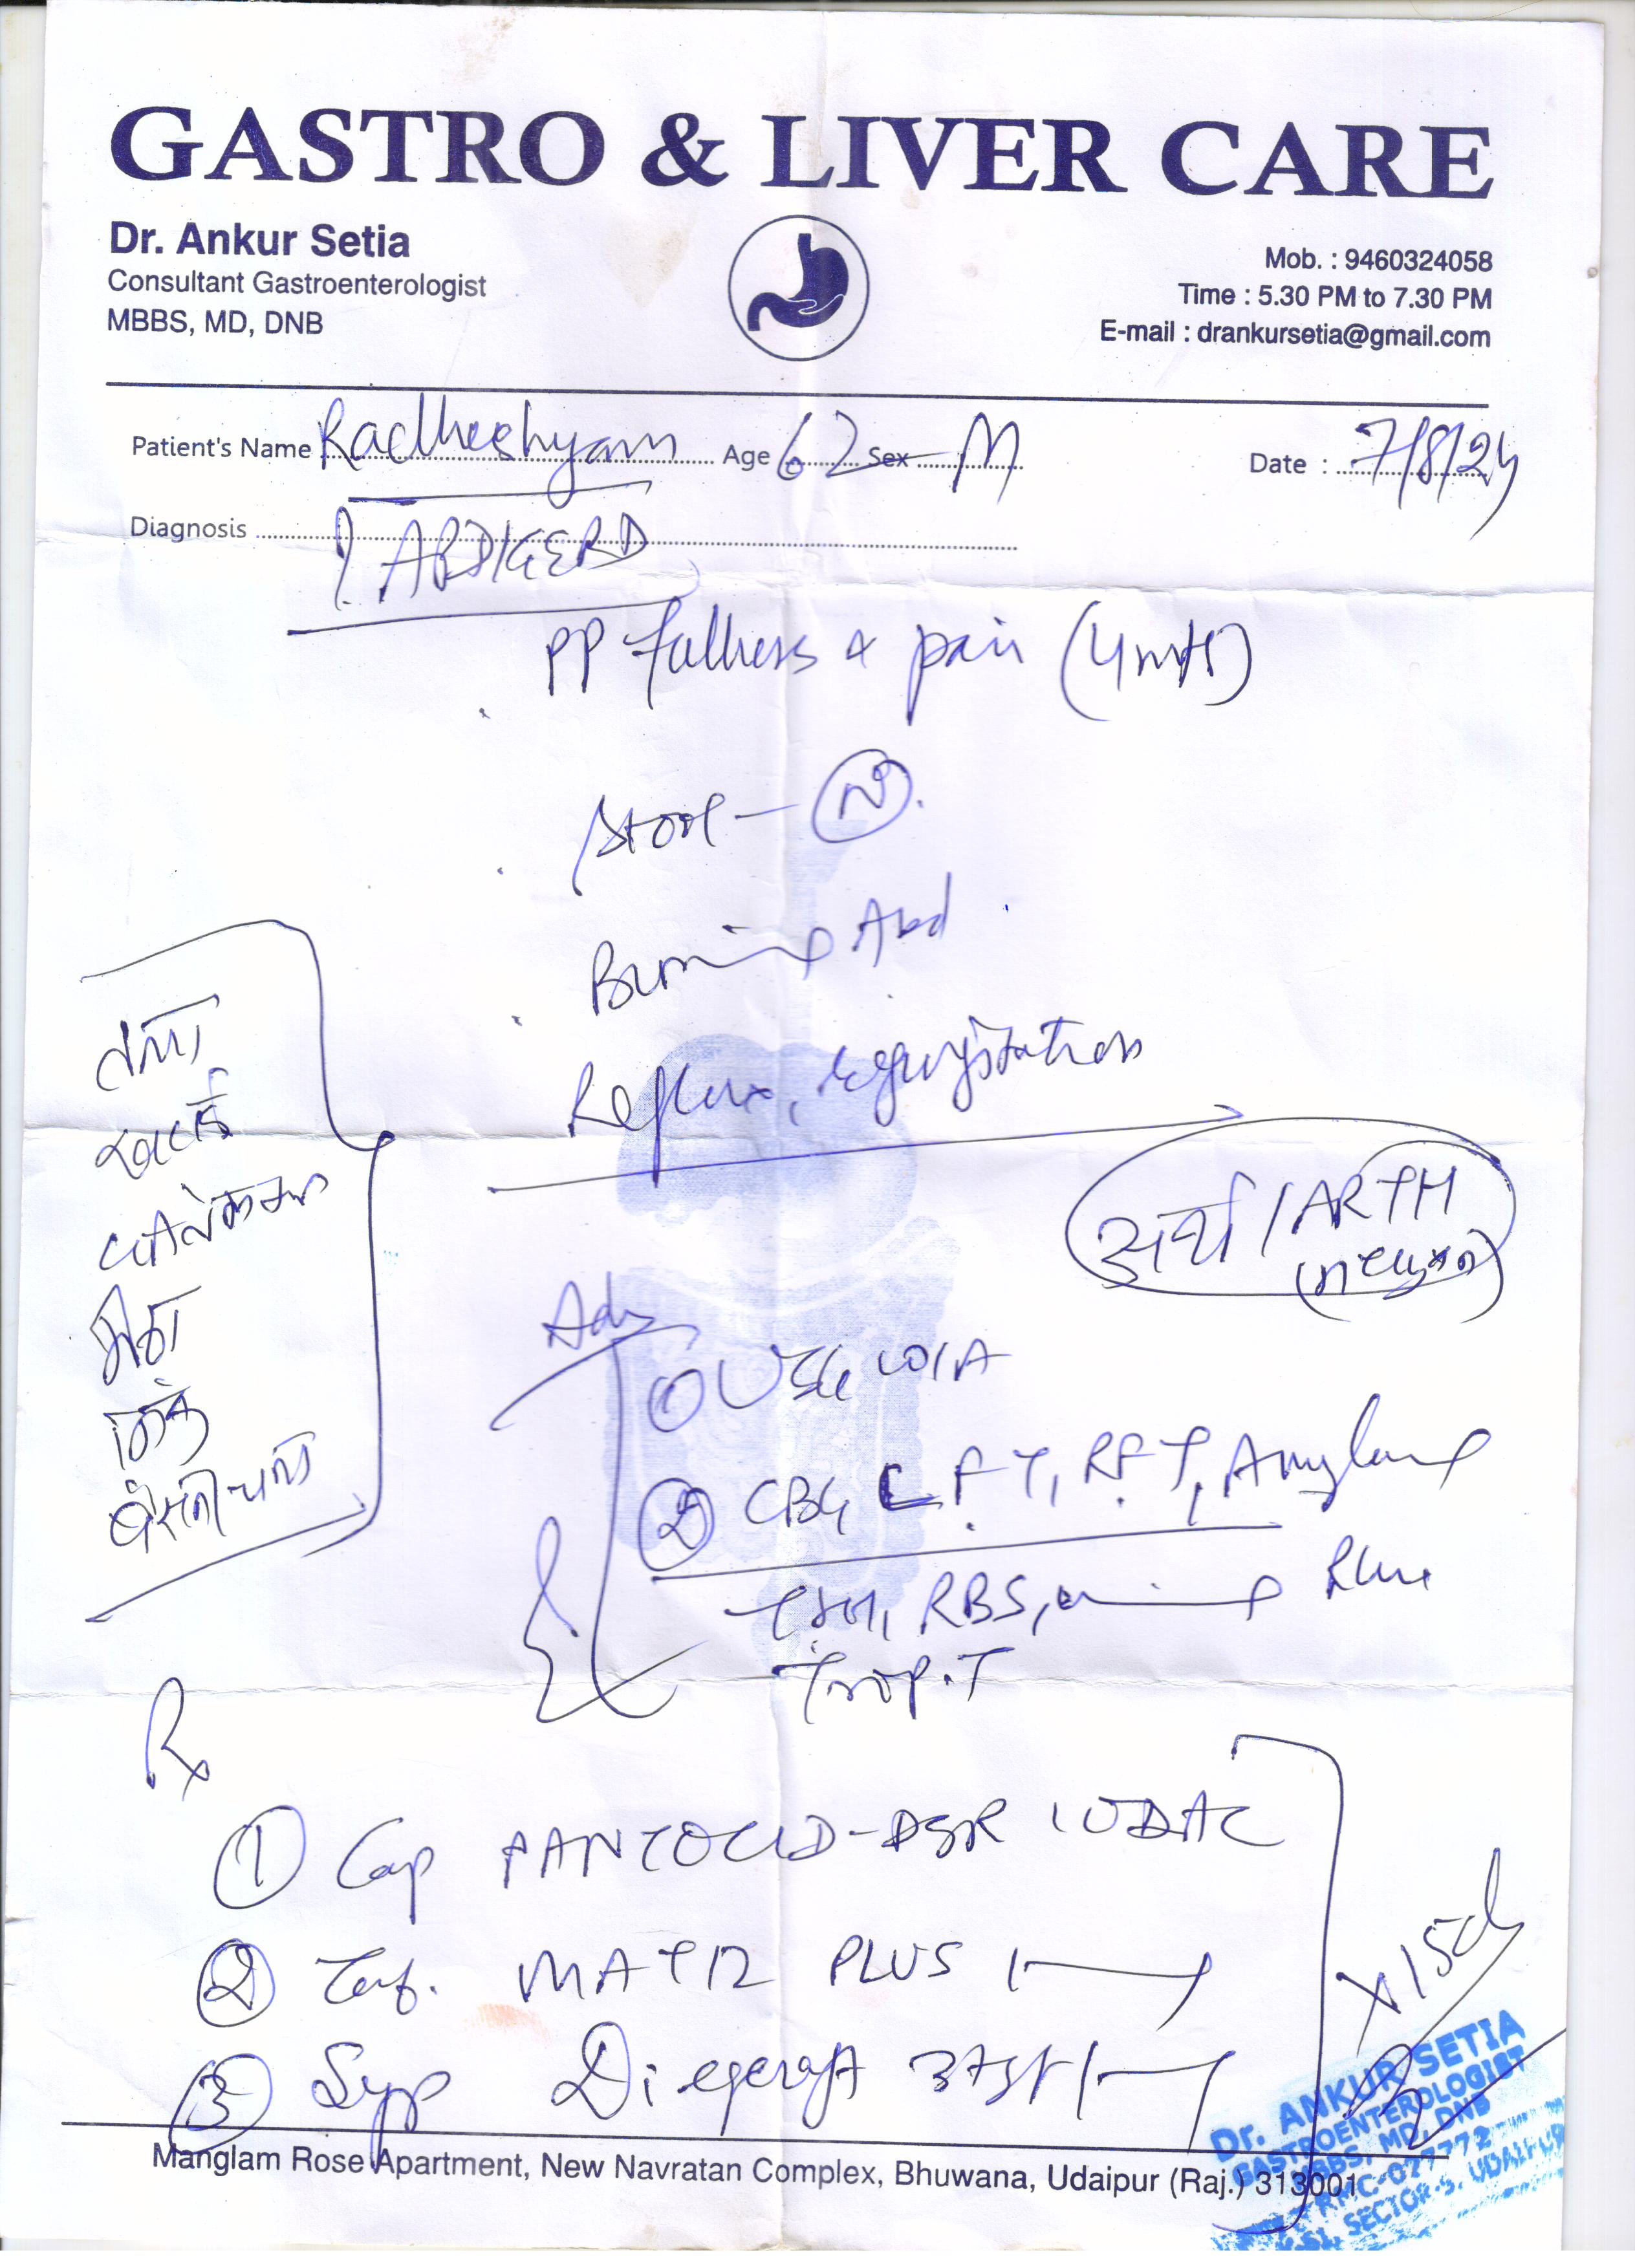 GASTRO & LIVER CARE
Dr. Ankur Setia
Consultant Gastroenterologist
MBBS, MD, DNB
Mob. : 9460324058
Time : 5.30 PM to 7.30 PM
E-mail : drankursetia@gmail.com
Patient's Name Radheshyam Age 62 Sex M Date : 7/8/24
Diagnosis ? APD/GERD
PP fullness & pain (4 mth)
Stool - N
Burning Abd
Reflux, regurgitation
अर्थ / ARTH
Adv
① USG W/A
② CBC, LFT, RFT, Amylase
TSH, RBS,
Trop. T
खटाई
मैदा
मिर्च
Rx
① Cap PANTOCID-DSR 1 OD AC
② Tab. PLUS 1
③ Syp
x 15 d
Dr. ANKUR SETIA
GASTROENTEROLOGIST
MBBS, MD, DNB
Manglam Rose Apartment, New Navratan Complex, Bhuwana, Udaipur (Raj.) 313001